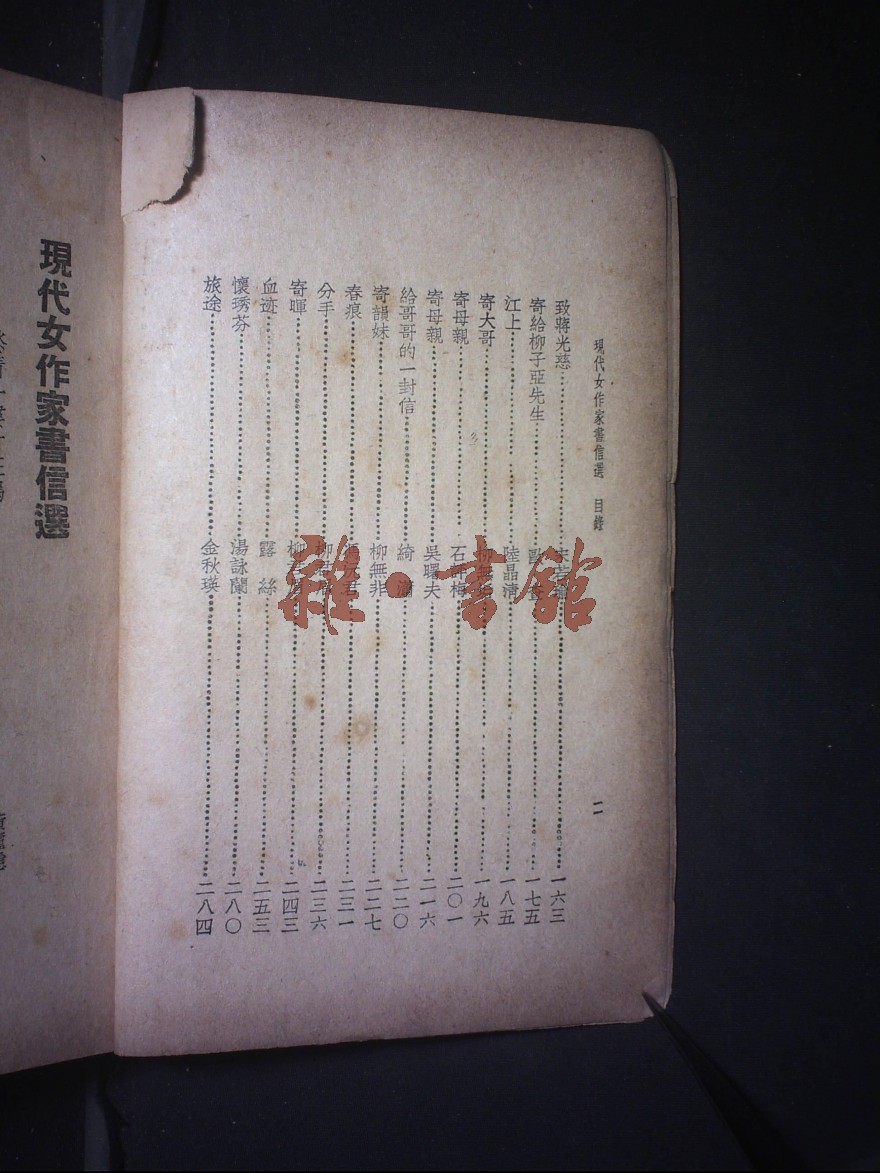 現代女作家書信選 目錄
二
致蔣光慈 宋若瑜 一六三
寄給柳子亞先生 一七五
江上 陸晶清 一八五
寄大哥 柳無 一九六
寄母親 石評梅 二〇一
寄母親 吳曙夫 二一六
給哥哥的一封信 綺瀟 二二〇
寄韻妹 柳無非 二二七
春痕 馮沅君 二三一
分手 二三六
寄暉 二四三
血迹 露絲 二五三
懷琇芬 湯詠蘭 二八〇
旅途 金秋瑛 二八四
現代女作家書信選
雜·書館